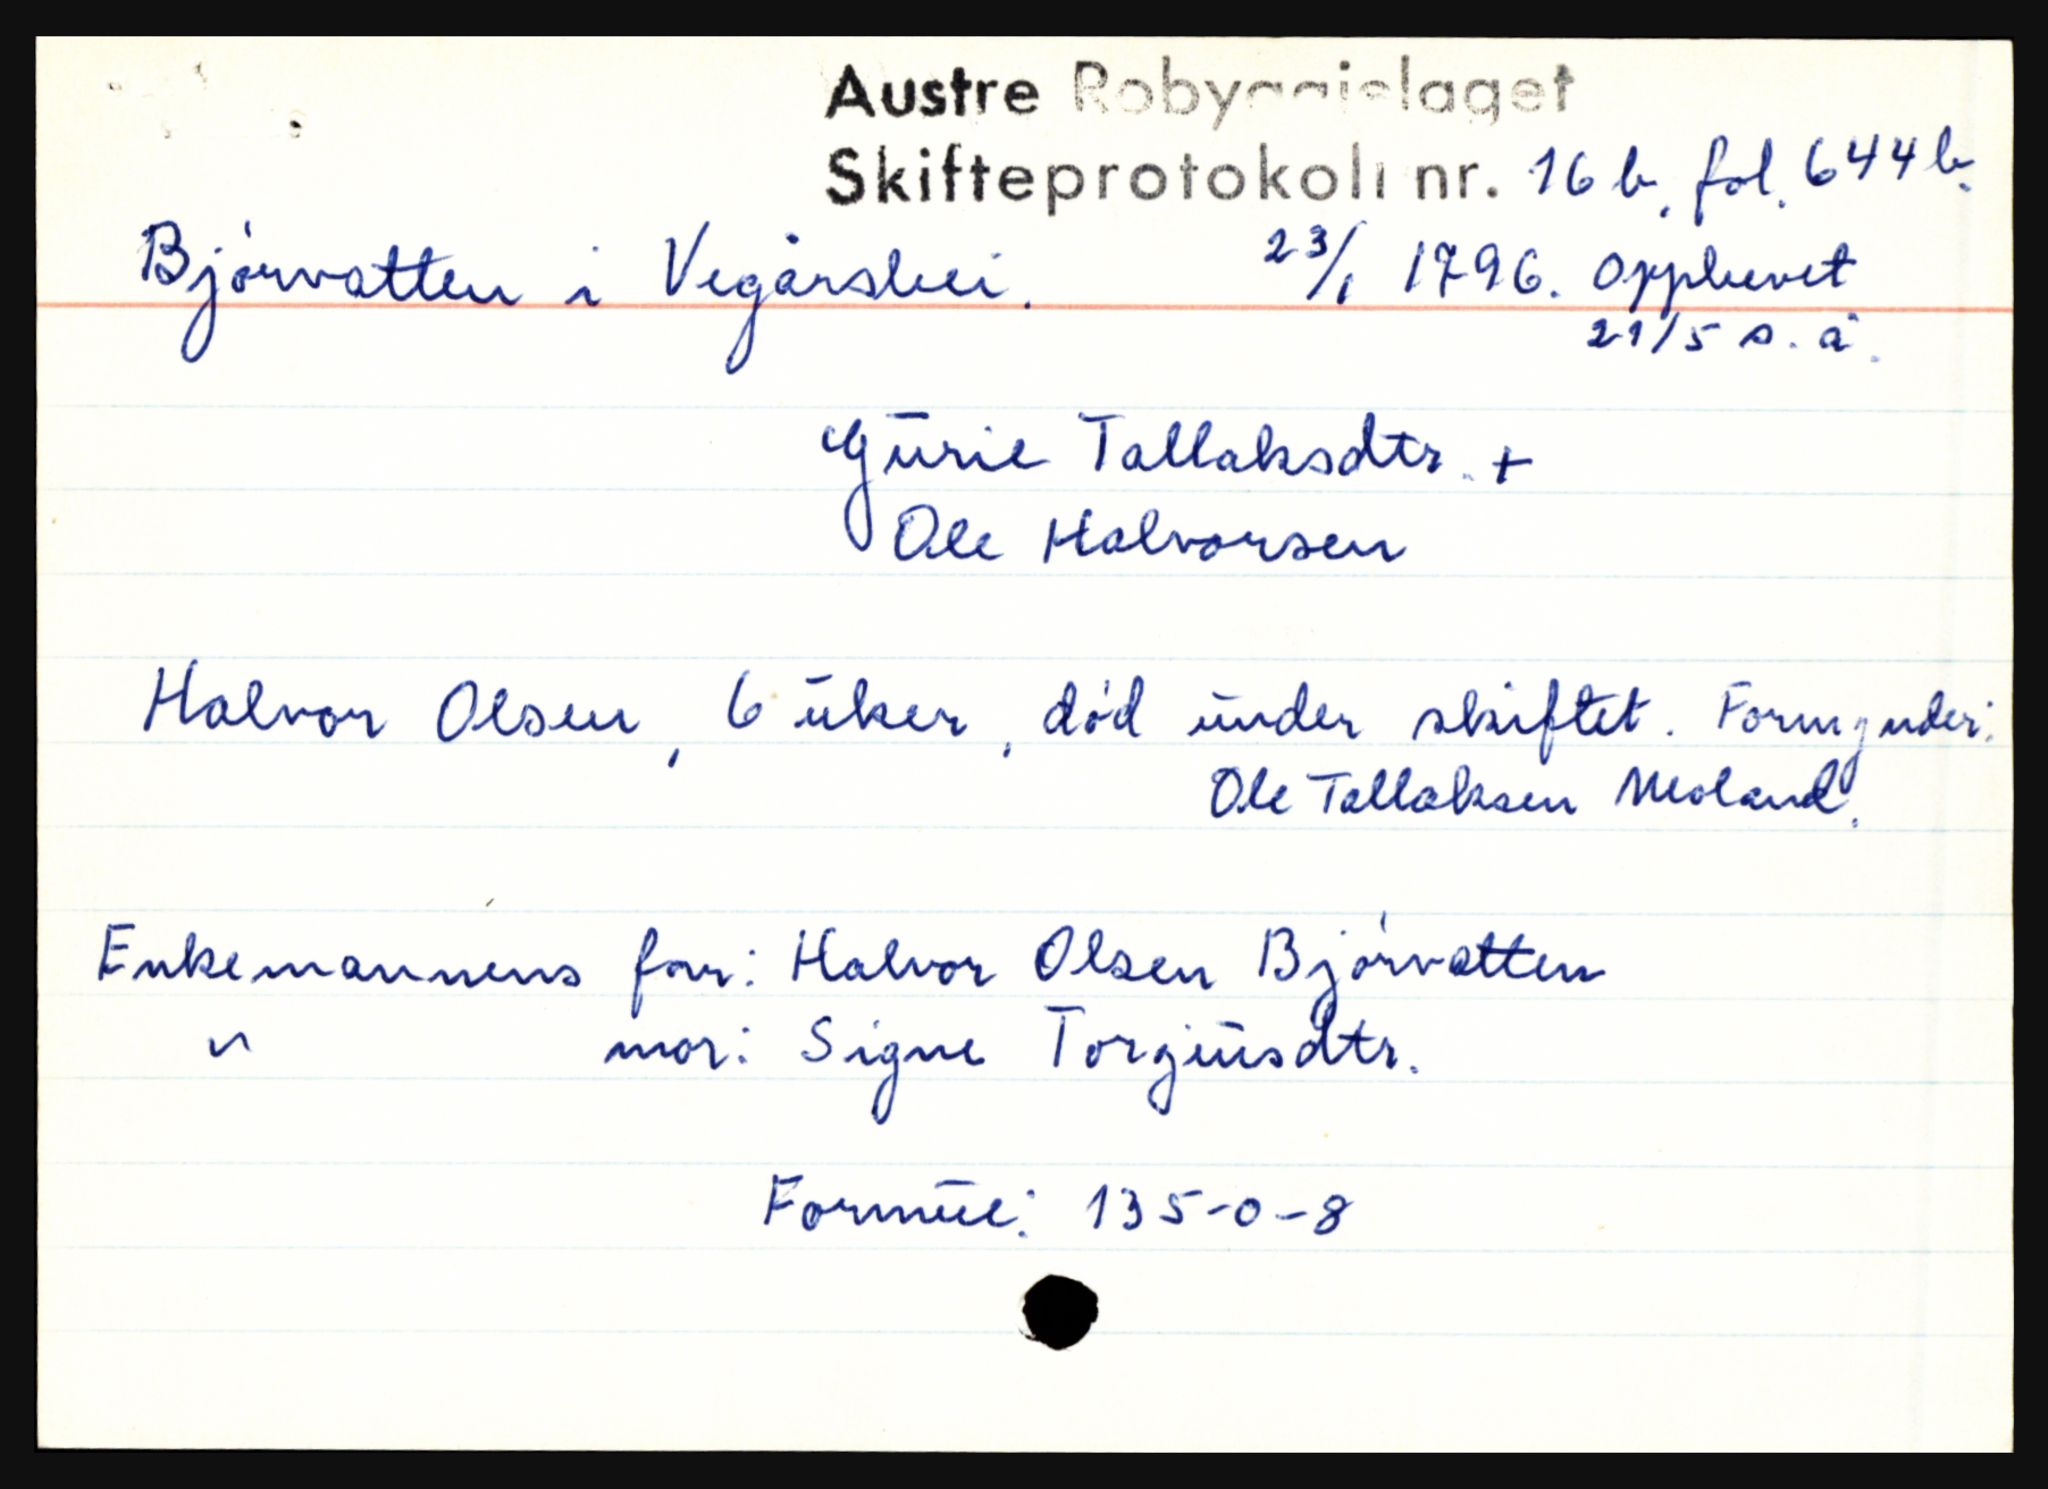 Austre Robyggjelaget
Skifteprotokoll nr. 16 b, fol. 644 b.
Bjørvatten i Vegårshei. 23/1 1796. Opphevet
21/5 s. å.
Gurie Tallaksdtr. +
Ole Halvorsen
Halvor Olsen, 6 uker, død under skiftet. Formynder:
Ole Tallaksen Moland.
Enkemannens far: Halvor Olsen Bjørvatten
" mor: Signe Torgjusdtr.
Formue: 135-0-8